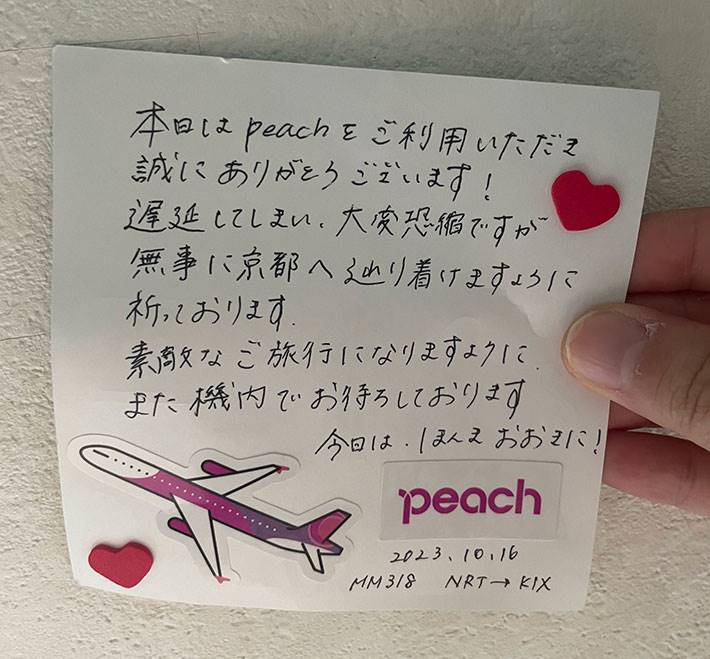 本日は peachを ご利用いただき
誠に ありがとうございます！
遅延してしまい、大変恐縮ですが
無事に京都へ辿り着けますように
祈っております.
素敵な ご旅行になりますように.
また機内で お待ちしております
今日は、ほんま おおきに！
peach
2023.10.16
MM318 NRT→KIX